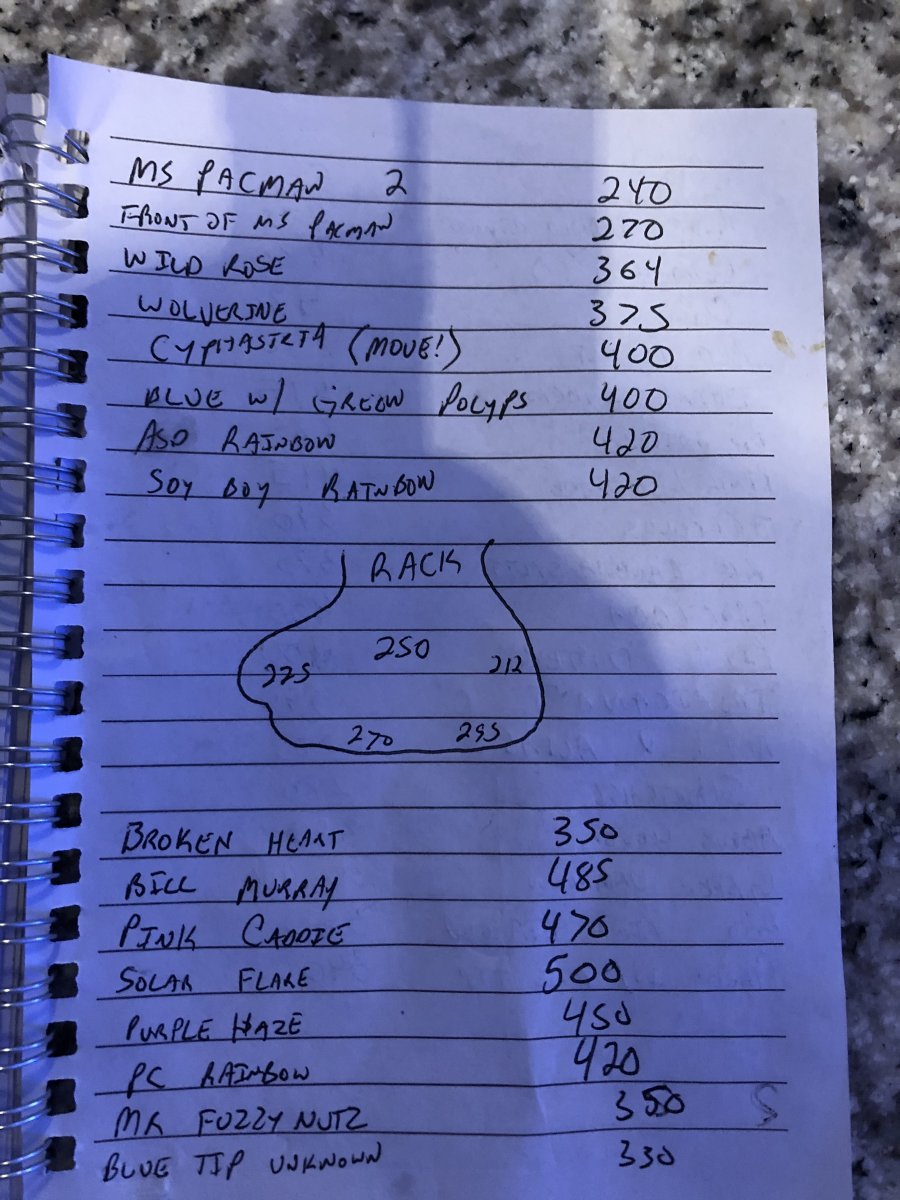 MS PACMAN 2 240
FRONT OF MS PACMAN 270
WILD ROSE 364
WOLVERINE 375
CYPHASTRIA (MOVE!) 400
BLUE W/ GREEN POLYPS 400
ASD RAINBOW 420
SOY BOY RAINBOW 420
RACK
250
225 212
270 295
BROKEN HEART 350
BILL MURRAY 485
PINK CADDIE 470
SOLAR FLARE 500
PURPLE HAZE 450
PC RAINBOW 420
MR FUZZY NUTZ 350
BLUE TIP UNKNOWN 330